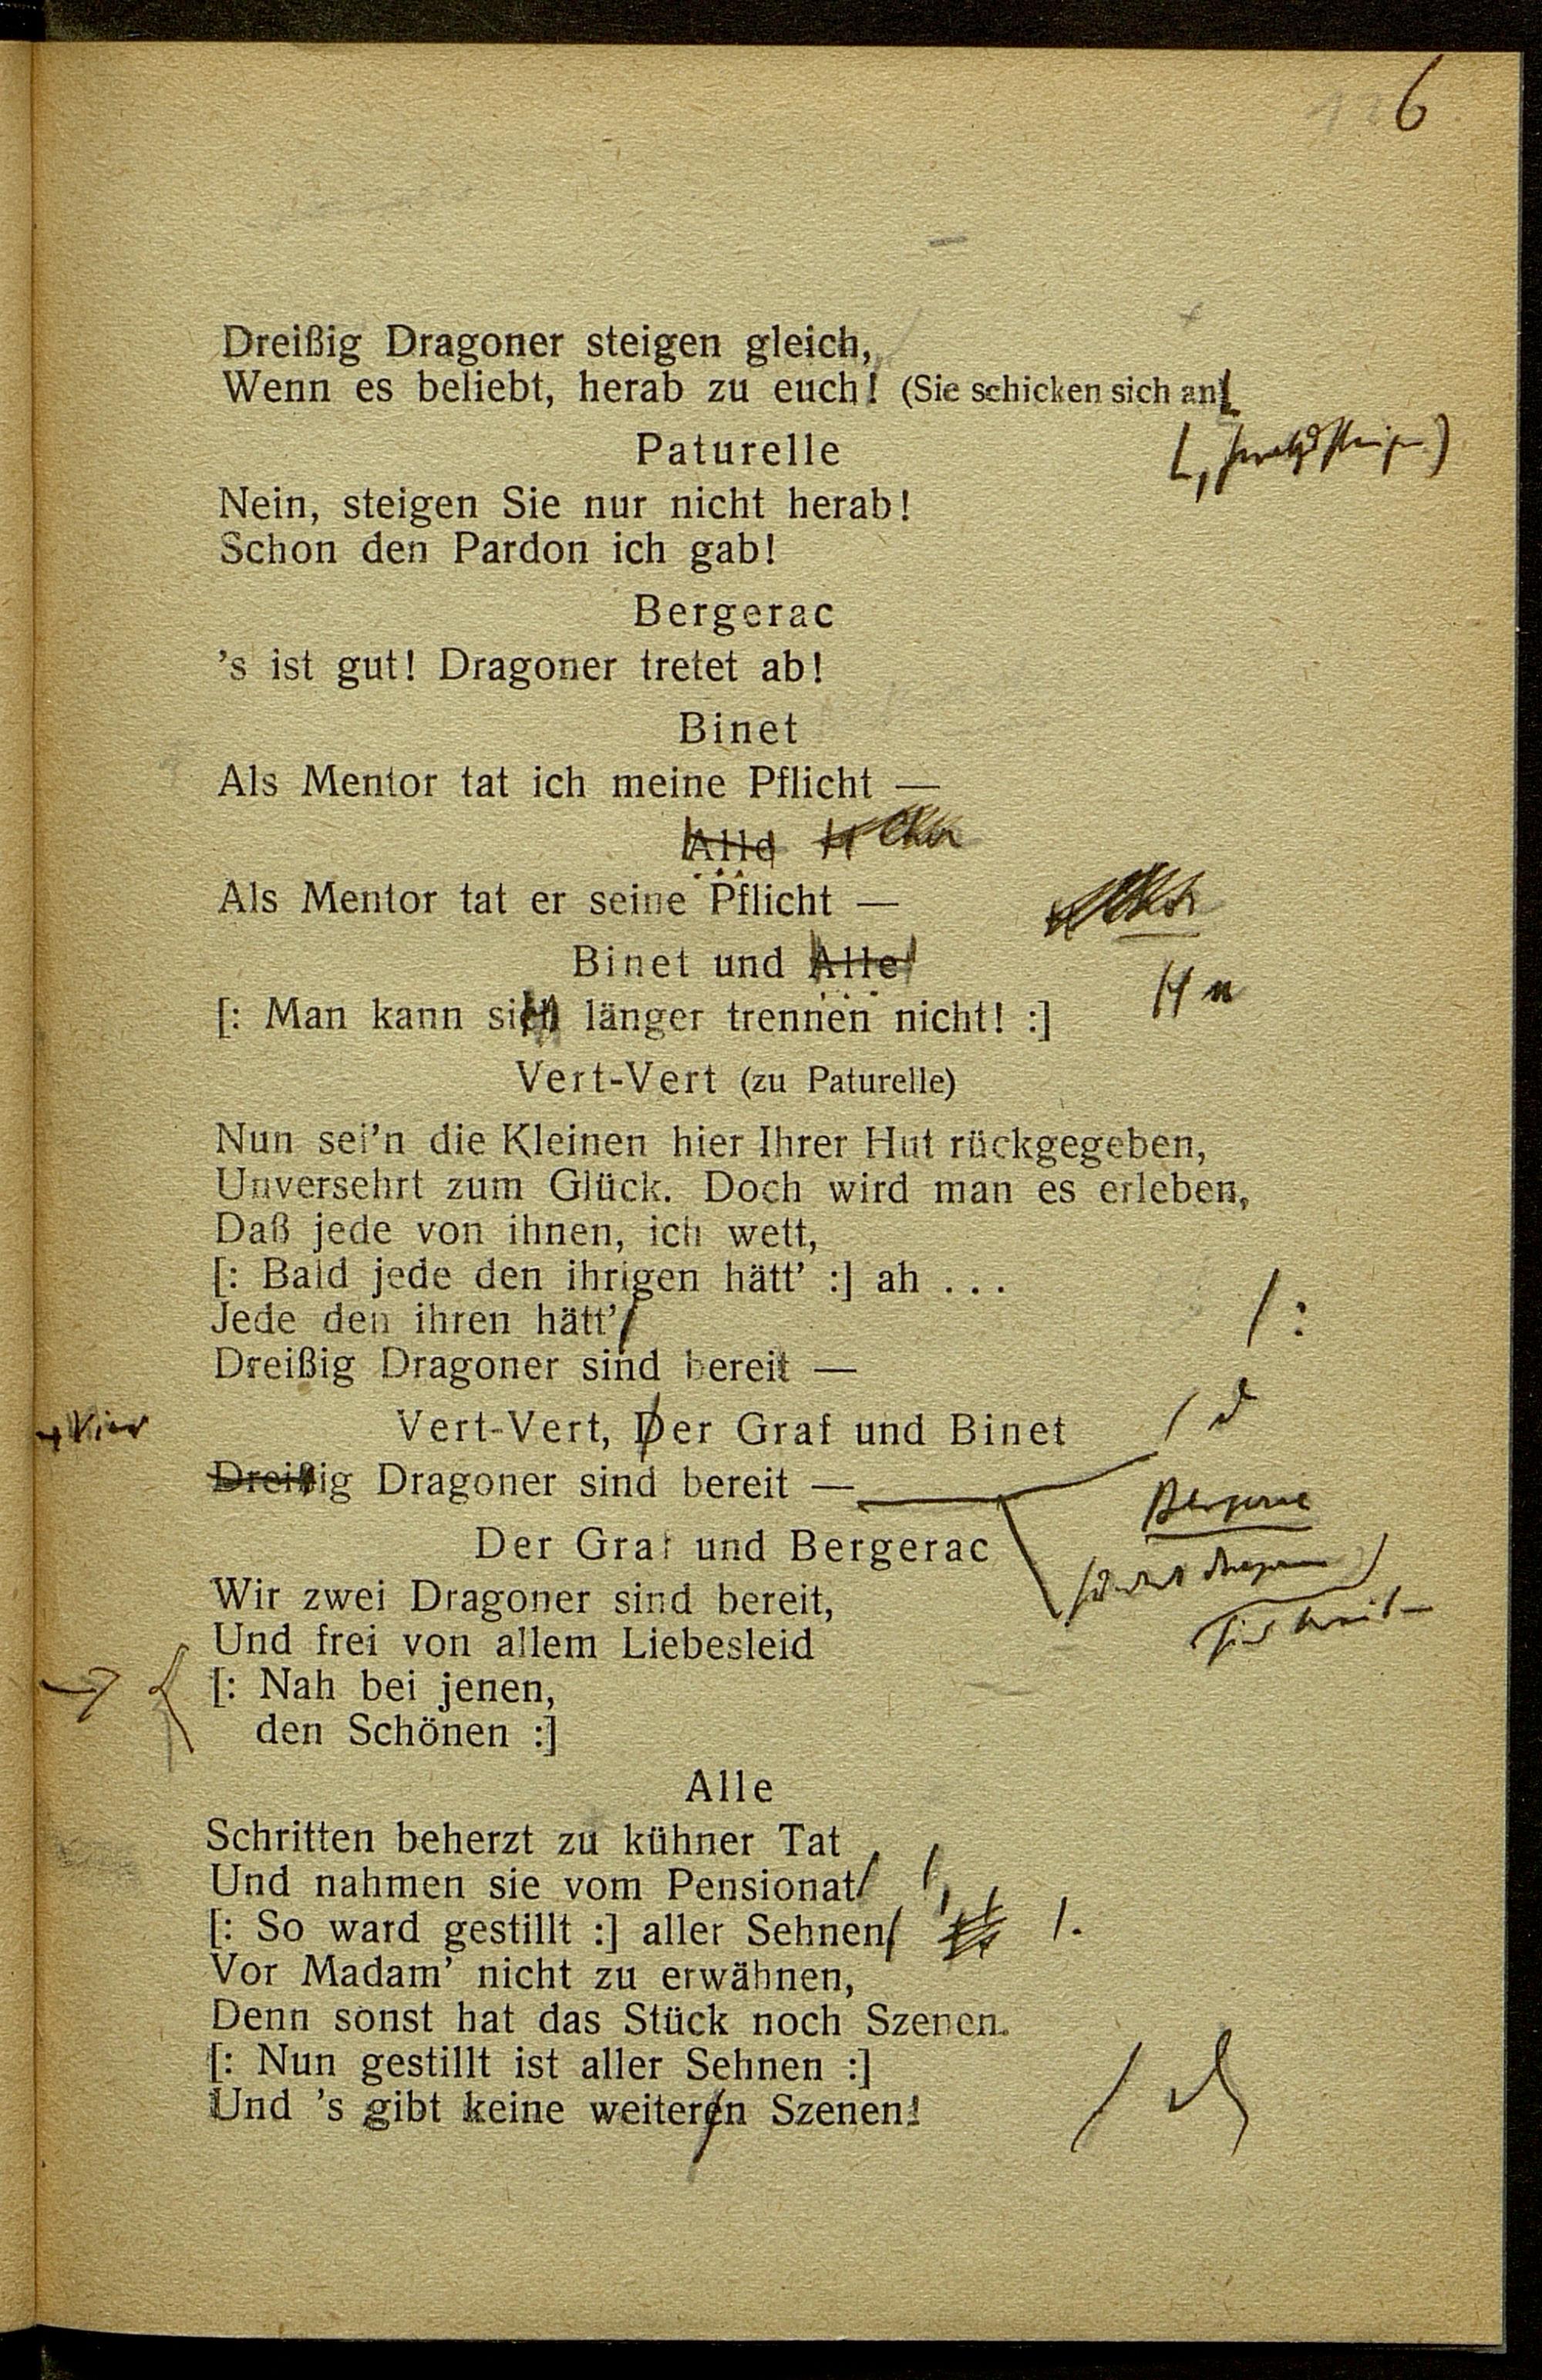 6
Dreißig Dragoner steigen gleich,
Wenn es beliebt, herab zu euch! (Sie schicken sich an
Paturelle
Nein, steigen Sie nur nicht herab!
Schon den Pardon ich gab!
Bergerac
’s ist gut! Dragoner tretet ab!
Binet
Als Mentor tat ich meine Pflicht —
Alle
Als Mentor tat er seine Pflicht —
Binet und Alle
[: Man kann sich länger trennen nicht! :]
Vert-Vert (zu Paturelle)
Nun sei’n die Kleinen hier Ihrer Hut rückgegeben,
Unversehrt zum Glück. Doch wird man es erleben,
Daß jede von ihnen, ich wett,
[: Bald jede den ihrigen hätt’ :] ah . . .
Jede den ihren hätt’
Dreißig Dragoner sind bereit —
Vert-Vert, Der Graf und Binet
Dreißig Dragoner sind bereit —
Bergerac
Der Graf und Bergerac
Wir zwei Dragoner sind bereit,
Und frei von allem Liebesleid
[: Nah bei jenen,
den Schönen :]
Alle
Schritten beherzt zu kühner Tat
Und nahmen sie vom Pensionat
[: So ward gestillt :] aller Sehnen
Vor Madam’ nicht zu erwähnen,
Denn sonst hat das Stück noch Szenen.
[: Nun gestillt ist aller Sehnen :]
Und ’s gibt keine weiteren Szenen!